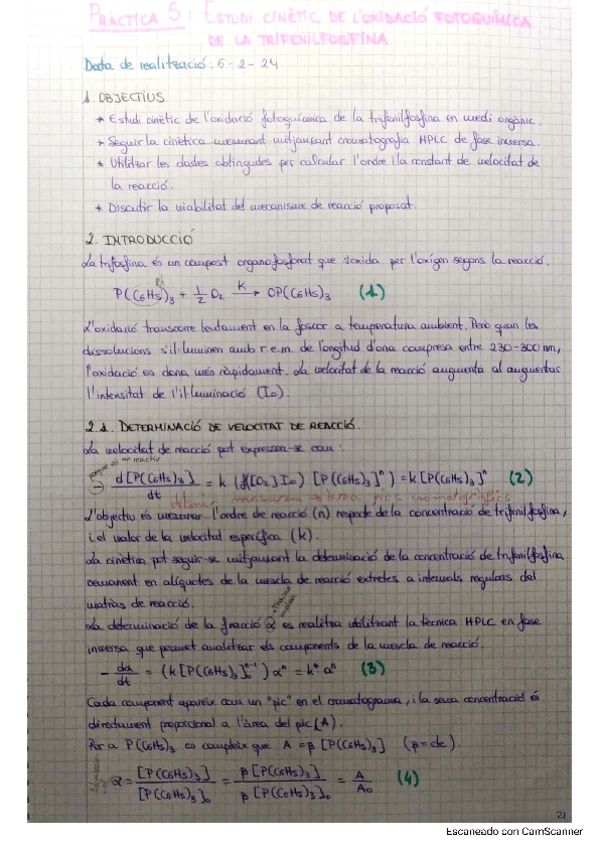 PRÀCTICA 5: ESTUDI CINÈTIC DE L'OXIDACIÓ FOTOQUÍMICA
DE LA TRIFENILFOSFINA
Data de realització: 6-2-24
1. OBJECTIUS
* Estudi cinètic de l'oxidació fotoquímica de la trifenilfosfina en medi orgànic.
* Seguir la cinètica mesurant mitjançant cromatografia HPLC de fase inversa.
* Utilitzar les dades obtingudes per calcular l'ordre i la constant de velocitat de
la reacció.
* Discutir la viabilitat del mecanisme de reacció proposat.
2. INTRODUCCIÓ
La trifosfina és un compost organofosforat que s'oxida per l'oxígen segons la reacció.
P(C6H5)3 + 1/2 O2 →k OP(C6H5)3 (1)
L'oxidació transcorre lentament en la foscor a temperatura ambient. Però quan les
dissolucions s'il·luminen amb r.e.m. de longitud d'ona compresa entre 230-300 nm,
l'oxidació es dona més ràpidament. La velocitat de la reacció augmenta al augmentar
l'intensitat de l'il·luminació (I0).
2.1. DETERMINACIÓ DE VELOCITAT DE REACCIÓ.
La velocitat de reacció pot expressar-se com:
porque és un reactiu
- d[P(C6H5)3]/dt = k (f([O2] I0) [P(C6H5)3]^n) = k [P(C6H5)3]^n (2)
mesuram àrea pics cromatogràfics
L'objectiu és mesurar l'ordre de reacció (n) respecte de la concentració de trifenilfosfina,
i el valor de la velocitat específica (k).
La cinètica pot seguir-se mitjançant la determinació de la concentració de trifenilfosfina
romanent en alíquotes de la mescla de reacció extretes a intervals regulars del
matràs de reacció.
La determinació de la fracció α es realitza utilitzant la tècnica HPLC en fase
inversa que permet analitzar els components de la mescla de reacció.
- dα/dt = (k[P(C6H5)3]0^n-1) α^n = k* α^n (3)
Cada component apareix com un "pic" en el cromatograma, i la seua concentració és
directament proporcional a l'àrea del pic (A).
Per a P(C6H5)3 es compleix que A = β [P(C6H5)3] (β = cte).
α = [P(C6H5)3]/[P(C6H5)3]0 = β [P(C6H5)3]/β [P(C6H5)3]0 = A/A0 (4)
21
Escaneado con CamScanner